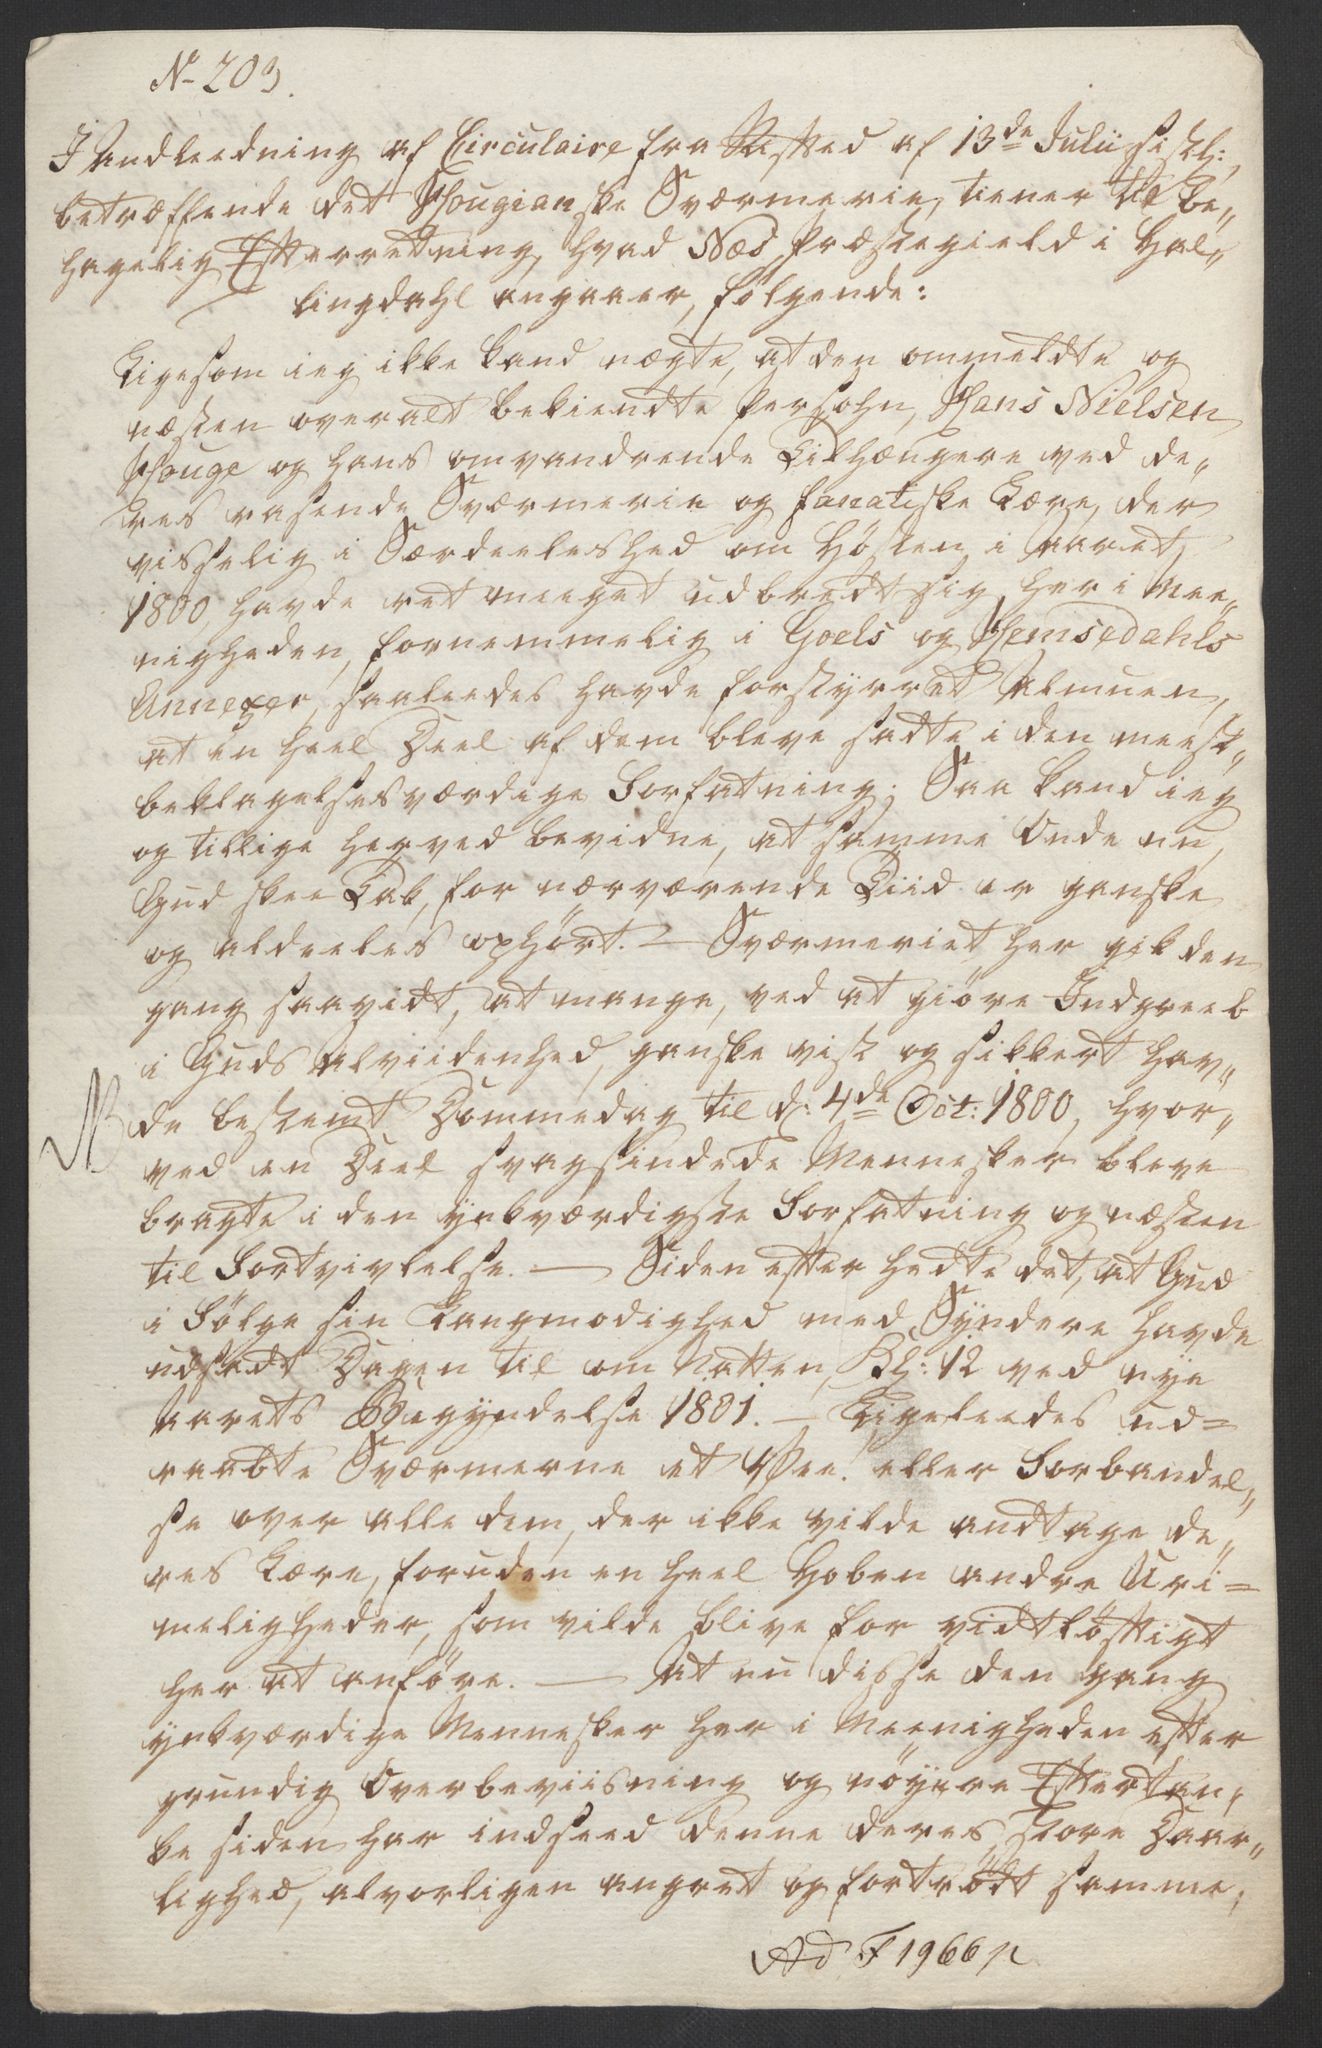 No 203.
I Andleedning af Circulaire fra Stiftet af 13de Julii sistl:
betræffende det Hougianske Sværmerie, tiener til be„
hagelig Efterretning, hvad Næs Præstegield i Hal„
lingdahl angaaer, følgende:
Ligesom ieg ikke kand nægte, at den ommeldte og
næsten overalt bekiendte Persohn, Hans Nielsen
Houge og hans omvandrende Tilhængere ved de„
res rasende Sværmerie og fanatiske Lære, der
visselig i Særdeeleshed om Høsten i Aaret
1800, havde ret meeget udbredt sig her i Mee„
nigheden, fornemmelig i Goels og Hemsedahls
Annexer, saaleedes havde forstyrret Almuen,
at en heel Deel af dem bleve satte i den meest„
beklagelsesværdige Forfatning; Saa kand ieg
og tillige herved bevidne, at samme Onde nu,
Gud skee Lov, for nærværende Tiid er ganske
og aldeeles ophørt. – Sværmeriet her gik den
gang saavidt, at mange, ved at giøre Indgreeb
i Guds Alviidenhed, ganske vist og sikkert hav„
NB de bestemt Dommedag til d: 4de Oct: 1800, hvor„
ved en Deel svagsindede Mennesker bleve
bragte i den ynkværdigste Forfatning og næsten
til Fortvivlelse. — Siden efter hedte det, at Gud
i Følge sin Langmodighed med Syndere havde
udsadt Dagen til om Natten, Kl: 12 ved nye
Aarets Begyndelse 1801. – Ligeleedes ud=
raabte Sværmerne et Vee! eller Forbandel„
se over alle dem, der ikke vilde andtage de„
res Lære, foruden en heel Hoben andre Uri=
meligheder, som vilde blive for vidtløftigt
her at anføre. — At nu disse den gang
ynkværdige Mennesker her i Meenigheden efter
grundig Overbeviisning og nøyere Eftertan„
ke siden har indseed denne deres store Daar„
lighed, alvorligen angret og fortrødt samme;
Ad F 1966 /1